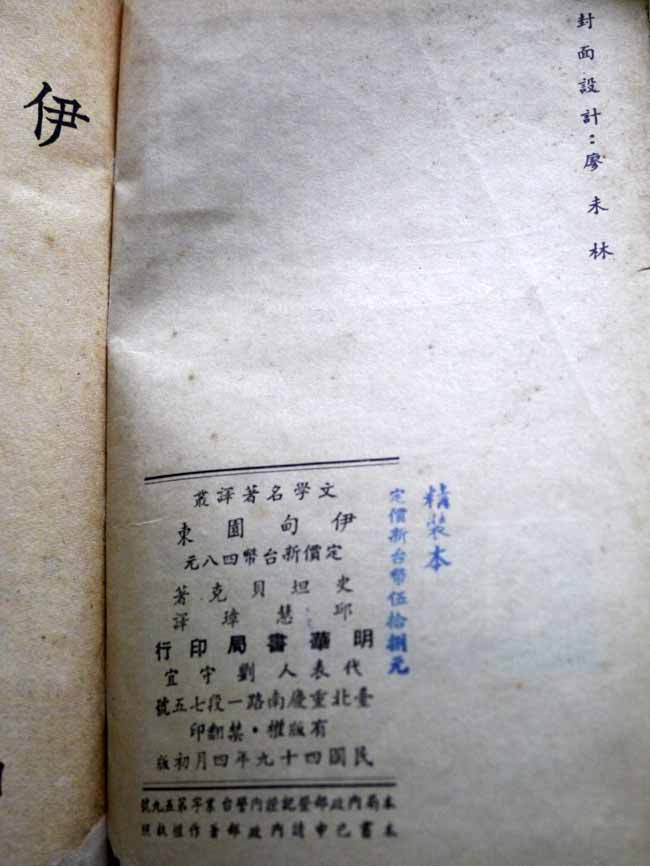 封面設計：廖未林
精裝本
定價新台幣伍拾捌元
文學名著譯叢
伊甸園東
定價新台幣四八元
史坦貝克著
邱慧璋譯
明華書局印行
代表人劉守宜
臺北重慶南路一段七五號
有版權・禁翻印
民國四十九年四月初版
本局內政部登記證內警台業字第五九號
本書已申請內政部著作權執照
伊